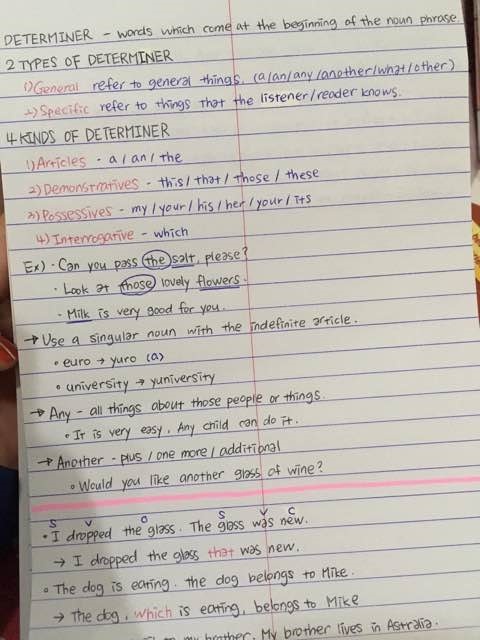 DETERMINER - words which come at the beginning of the noun phrase.
2 TYPES OF DETERMINER
1) General refer to general things. (a/an/any/another/what/other)
2) Specific refer to things that the listener/reader knows.
4 KINDS OF DETERMINER
1) Articles - a / an / the
2) Demonstratives - this / that / those / these
3) Possessives - my / your / his / her / your / its
4) Interrogative - which
Ex) • Can you pass the salt, please?
• Look at those lovely flowers.
• Milk is very good for you.
→ Use a singular noun with the indefinite article.
• euro → yuro (a)
• university → yuniversity
→ Any - all things about those people or things.
• It is very easy, Any child can do it.
→ Another - plus / one more / additional
• Would you like another glass of wine?
S V O S V C
• I dropped the glass. The glass was new.
→ I dropped the glass that was new.
• The dog is eating. the dog belongs to Mike.
→ The dog, which is eating, belongs to Mike
my brother. My brother lives in Astralia.